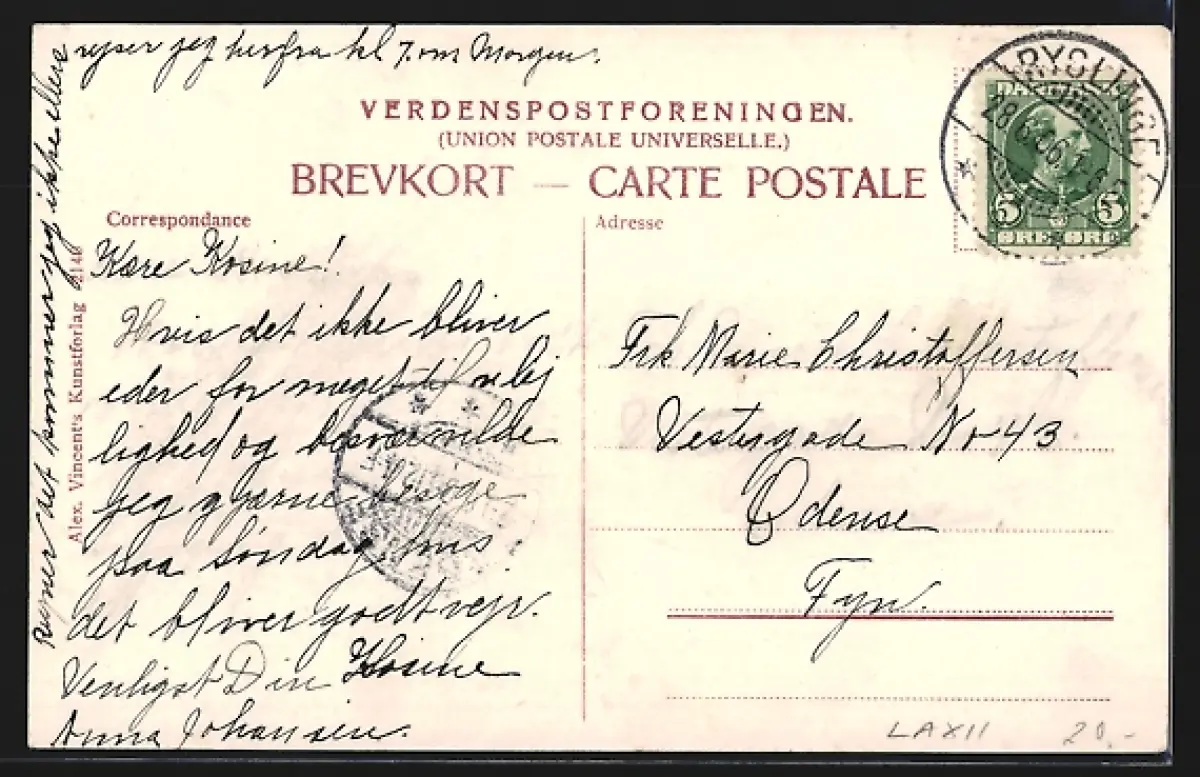 rejser jeg herfra kl 7. om Morgen.
VERDENSPOSTFORENINGEN.
(UNION POSTALE UNIVERSELLE.)
BREVKORT — CARTE POSTALE
Correspondance
Kære Kosine!
Hvis det ikke bliver
eder for meget til ulej
lighed og besvær vilde
jeg gjærne besøge
paa Søndag, hvis
det bliver godt vejr.
Venligst Din Kosine
Anna Johansen.
Regner det kommer jeg ikke ellers
Alex. Vincent's Kunstforlag 2140
Adresse
Frk Marie Christoffersen
Vestergade No 43
Odense
Fyn.
RYSLINGE
28.6.06
DANMARK
5 5
ØRE ØRE
LAXII 20,-